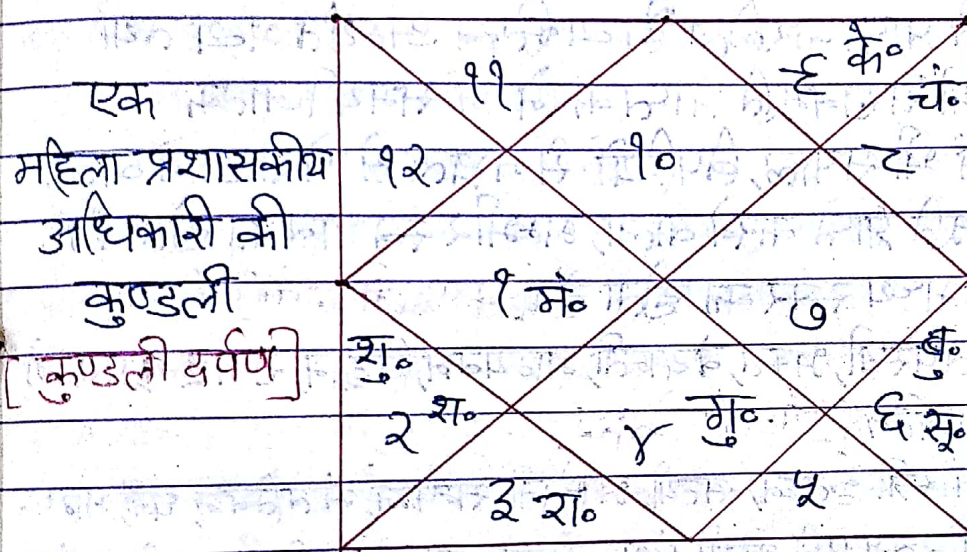 एक
महिला प्रशासकीय
अधिकारी की
कुण्डली
[कुण्डली दर्पण]
११
९ के॰
चं॰
१२
१०
८
१ मं॰
७
शु॰
बु॰
२ श॰
४
गु॰
६ सू॰
३ रा॰
५